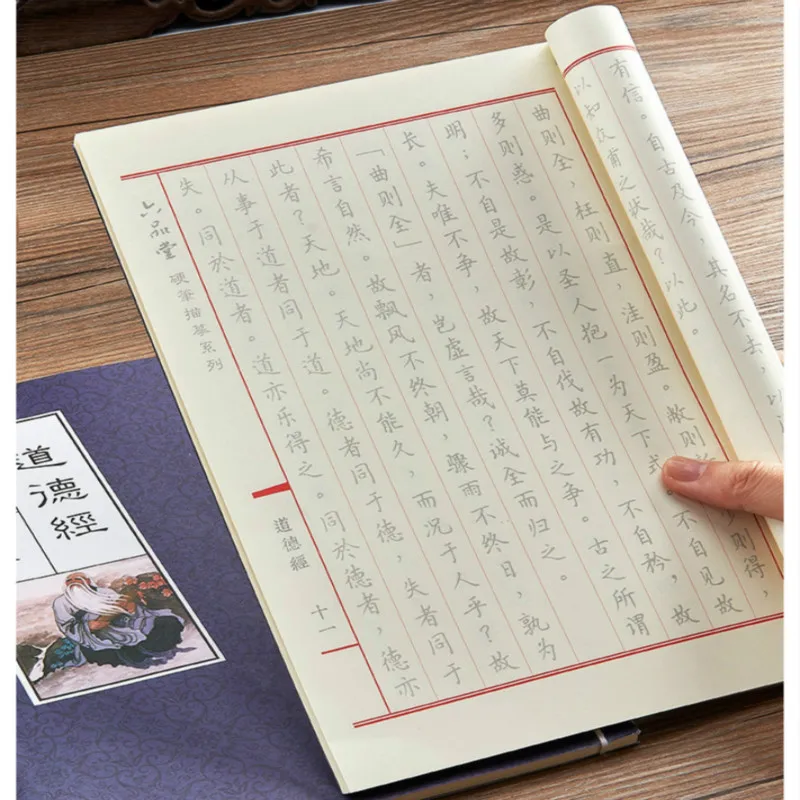 有信。自古及今，其名不去，以
以知众甫之状哉？以此。
曲则全，枉则直，洼则盈。敝则则得，
多则惑。是以圣人抱一为天下式。不自见故
明；不自是故彰，不自伐故有功，不自矜，故
长。夫唯不争，故天下莫能与之争。古之所谓
「曲则全」者，岂虚言哉？诚全而归之。
希言自然。故飘风不终朝，骤雨不终日，孰为
此者？天地。天地尚不能久，而况于人乎？故
从事于道者同于道。德者同于德，失者同于
失。同於道者。道亦乐得之。同於德者，德亦
六品堂
硬筆描摹系列
道德經
十一
道德經